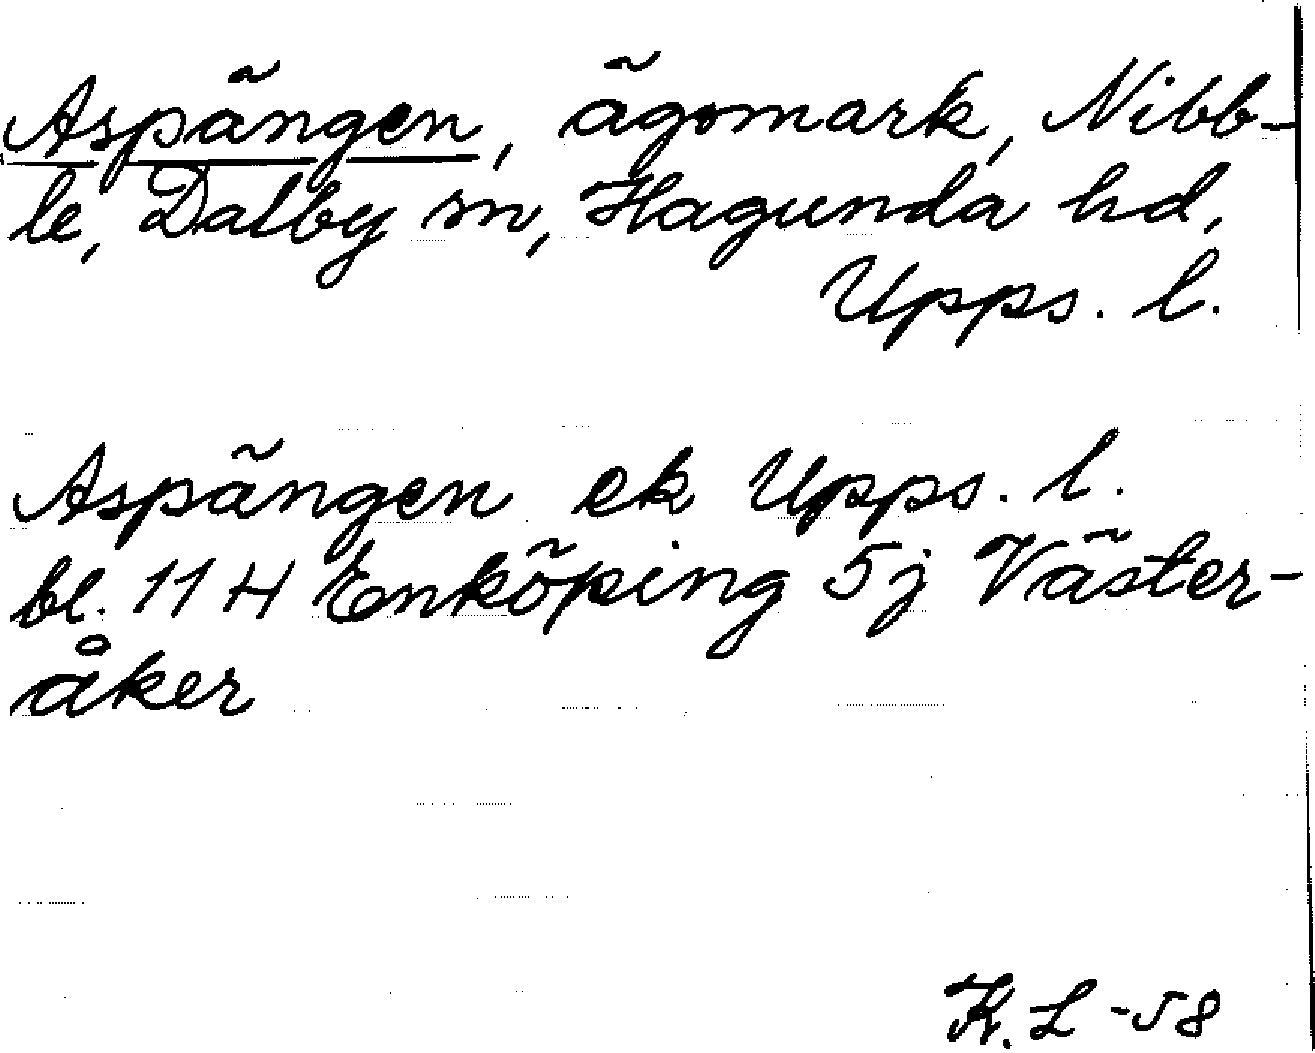 Aspängen, ägomark, Nibb-
le, Dalby sn, Hagunda hd,
Upps. l.
Aspängen ek Upps. l.
bl. 11 H Enköping 5j Väster-
åker
K. L -58